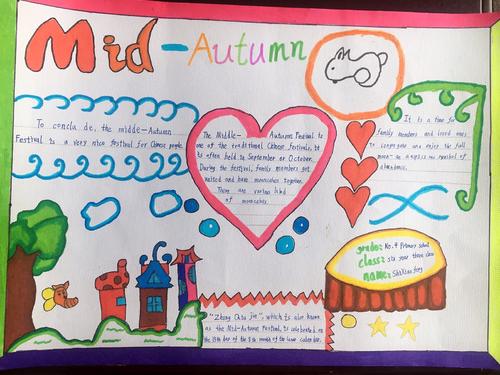 Mid-Autumn
To conclu de, the middle-Autumn
Festival is a very nice festival for Chinese people.
The Middle- Autumn Festival is
one of the traditional Chinese festivals, it
is often held in September or October.
During the festival, family members get
united and have mooncakes together.
There are various kind
of mooncakes.
It is a time for
family members and loved ones
to congregate and enjoy the full
moon- an auspicious symbol of
abundance.
grade: No.4 Primary school
class: six year three class
name:
"Zhong Qiu Jie", which is also known
as the Mid-Autumn Festival, is celebrated on
the 15th day of the 8th month of the lunar calendar.